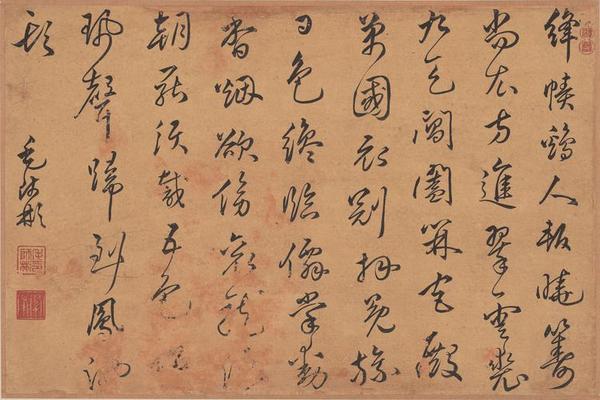 絳幘鷄人報曉籌
尚衣方進翠雲裘
九天閶闔開宮殿
萬國衣冠拜冕旒
日色纔臨僊掌動
香烟欲傍袞龍浮
朝罷須裁五色詔
珮聲歸到鳳池
頭
毛師彬